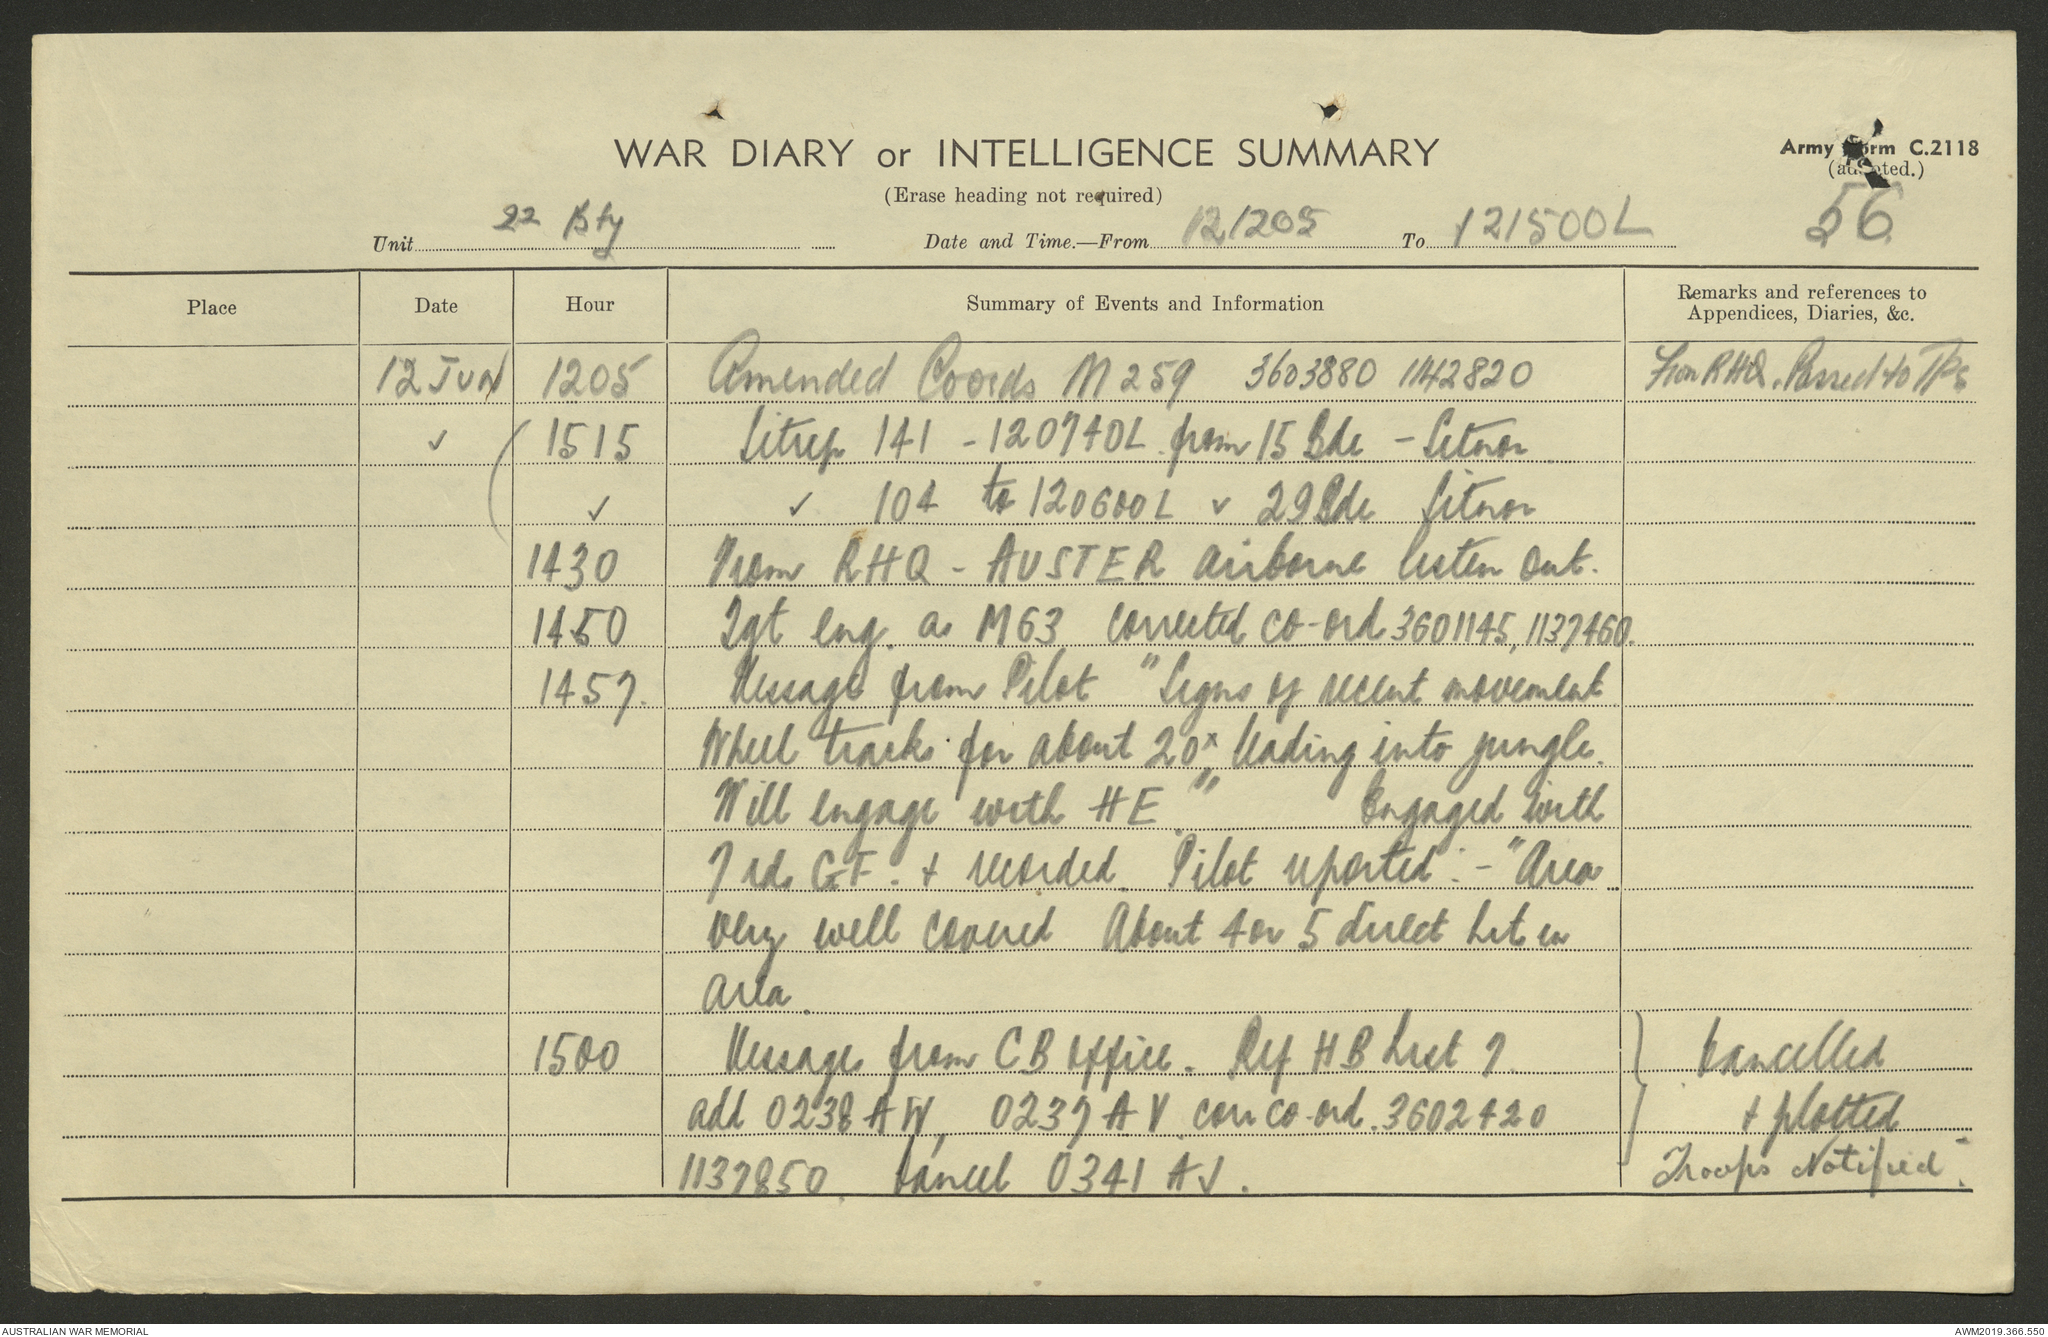 WAR DIARY or INTELLIGENCE SUMMARY
Army Form C.2118
(Erase heading not required)
(adapted.)
56
Unit 22 Bty Date and Time.—From 121205 To 121500L
Place Date Hour Summary of Events and Information Remarks and references to Appendices, Diaries, &c.
12 Jun 1205 Amended Coords M259 3603880 1142820 From RHQ. Passed to Tps
✓ 1515 Sitrep 141 - 120740L from 15 Bde - Sitnor
✓ ✓ 104 to 120600L ✓ 29 Bde Sitnor
1430 From RHQ - AUSTER airborne listen out.
1450 Tgt eng. as M63 corrected co-ord 3601145, 1137460.
1457. Message from Pilot "Signs of recent movement
Wheel tracks for about 20x leading into jungle.
Will engage with HE" Engaged with
7 rds G.F. & recorded. Pilot reported:- "Area
very well covered About 4 or 5 direct hits in
area.
1500 Message from CB office. Ref HB List 7. Cancelled
add 0238 AW, 0237 AV corr co-ord. 3602420 & plotted
1137850. Cancel 0341 AJ. Troops Notified.
AUSTRALIAN WAR MEMORIAL
AWM2019.366.550